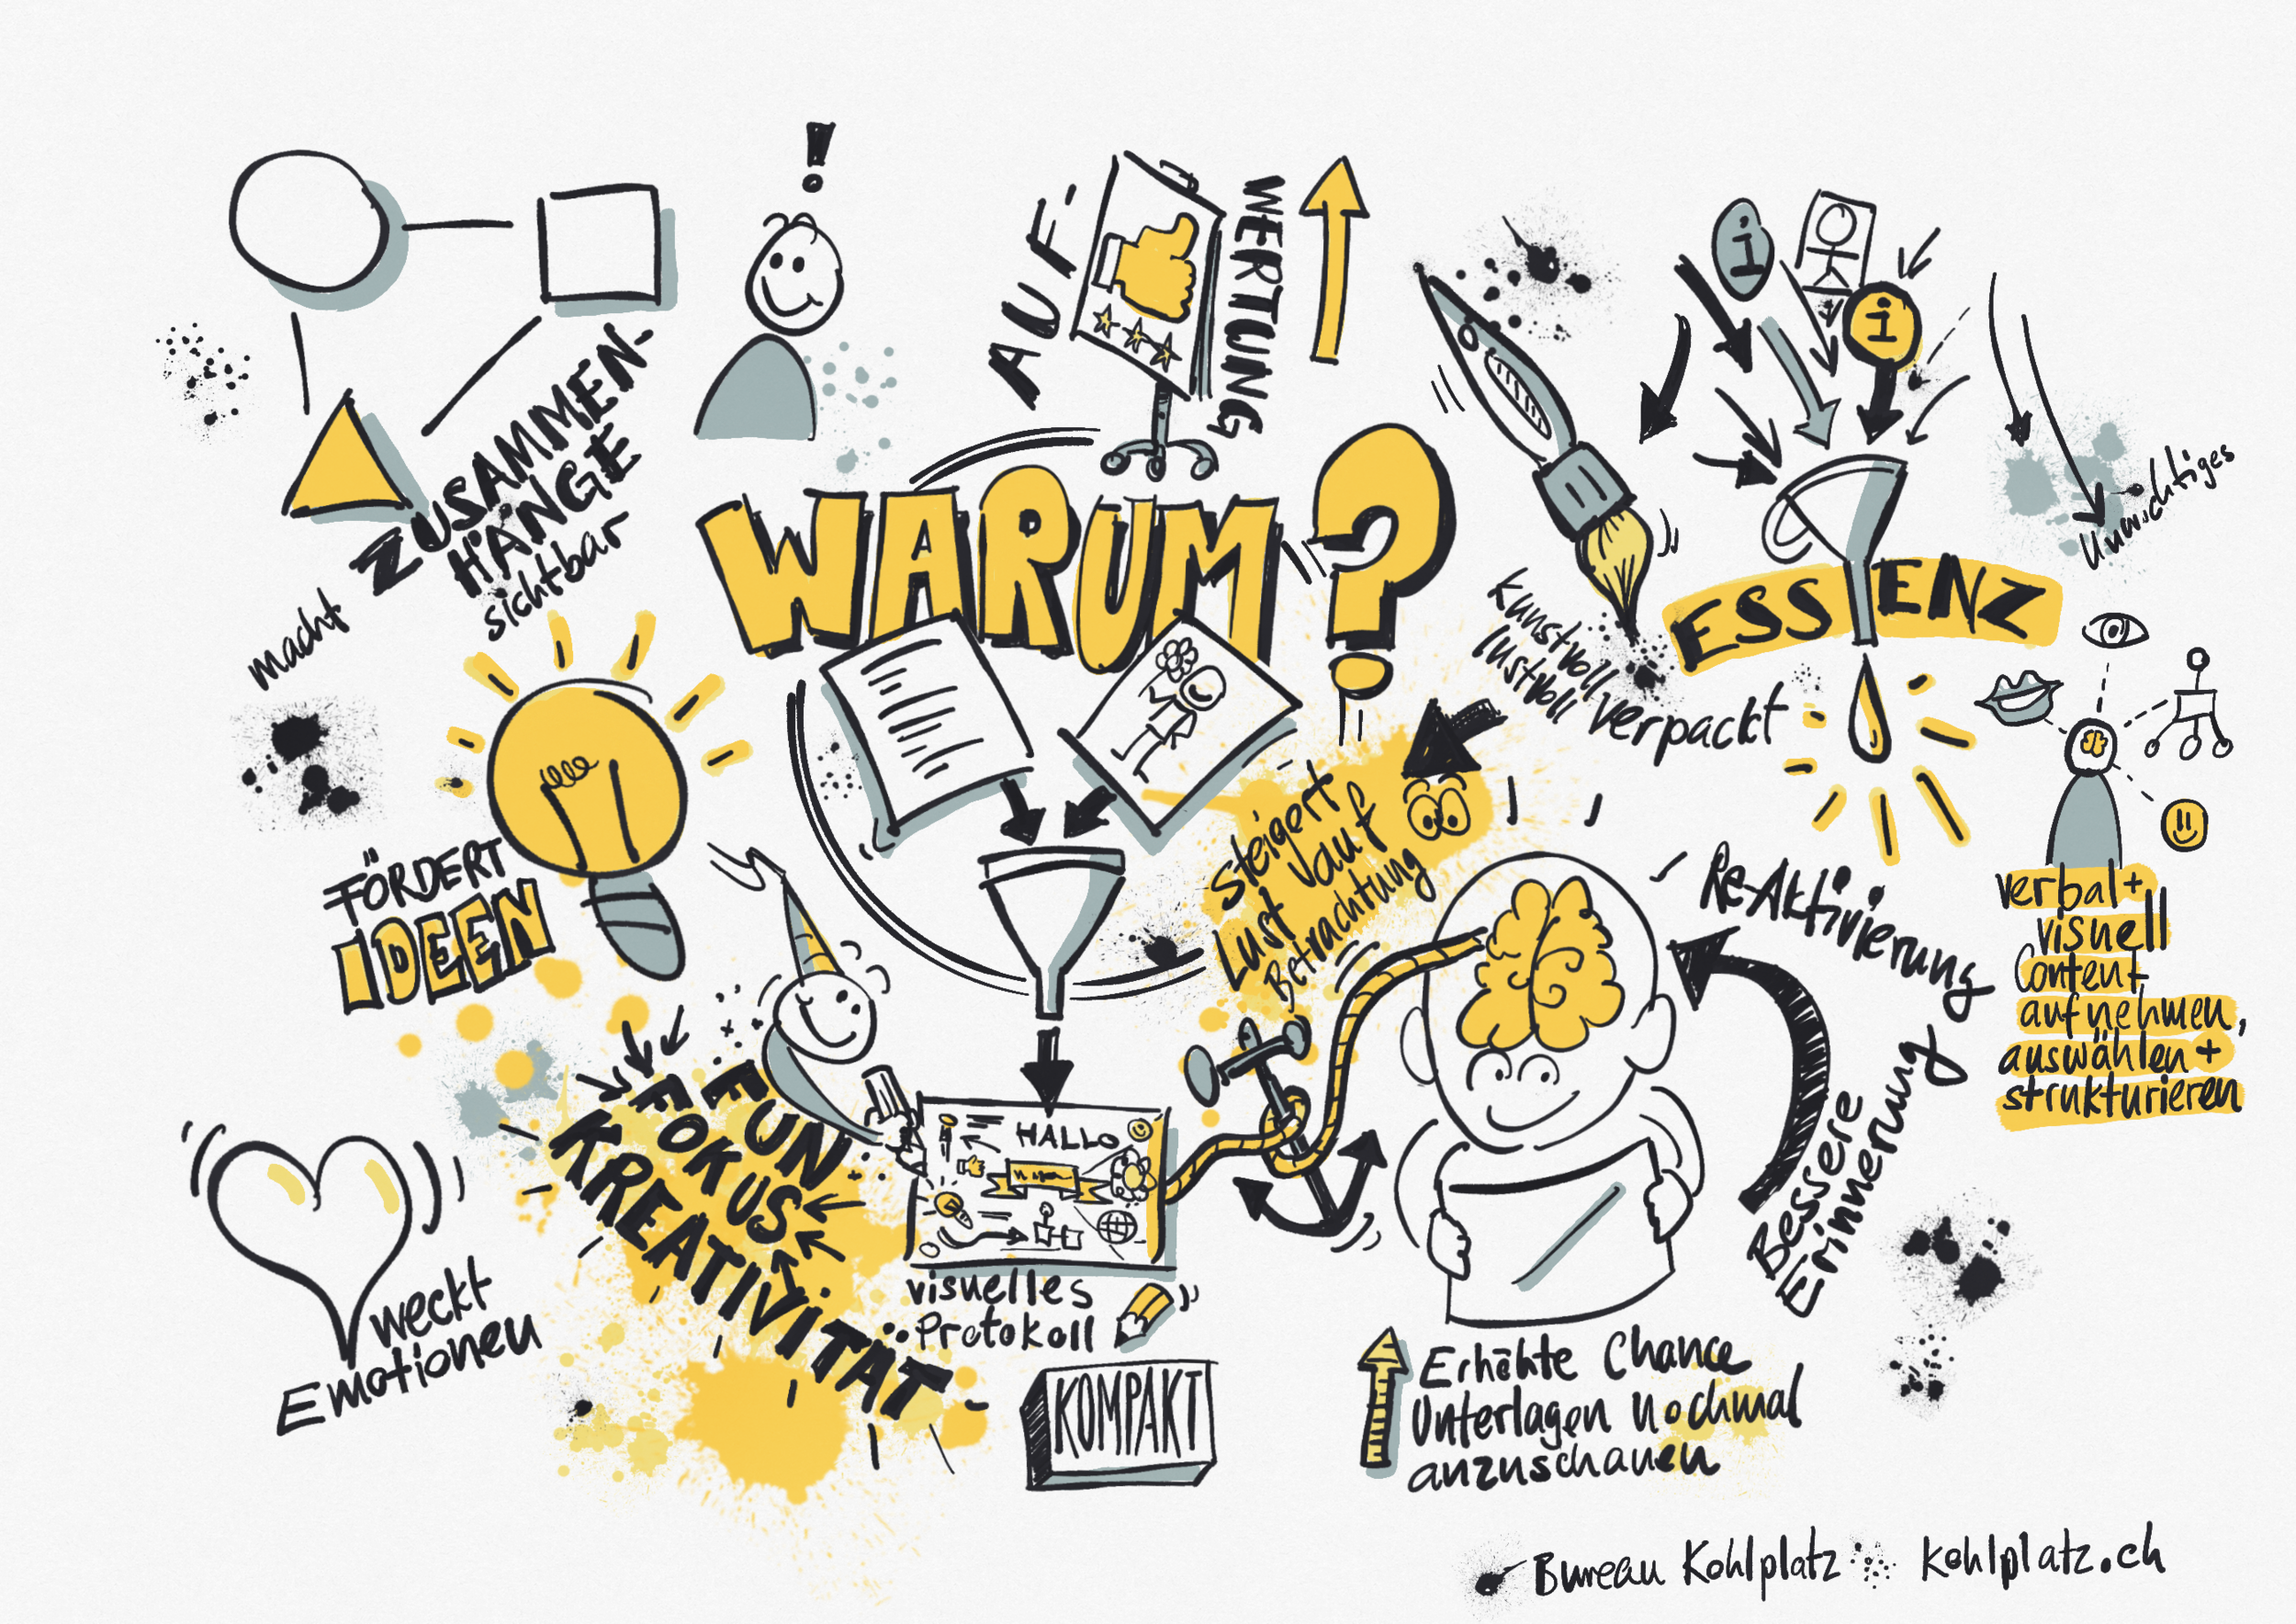 !
AUF-
WERTUNG
i
i
macht
ZUSAMMEN-
HÄNGE
sichtbar
WARUM?
kunstvoll
lustvoll
verpackt
ESSENZ
Unwichtiges
FÖRDERT
IDEEN
steigert
Lust auf
Betrachtung
Re-Aktivierung
Bessere
Erinnerung
verbal+
visuell
Content
aufnehmen,
auswählen+
strukturieren
FUN
FOKUS
KREATIVITÄT
HALLO
visuelles
Protokoll
KOMPAKT
weckt
Emotionen
Erhöhte Chance
Unterlagen nochmal
anzuschauen
Bureau Kohlplatz
kohlplatz.ch